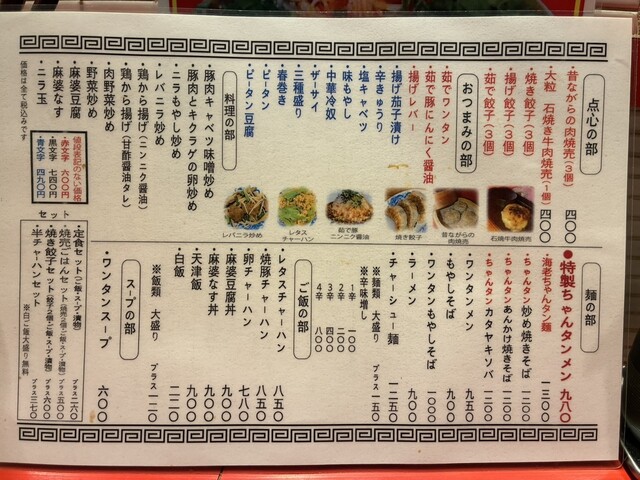 点心の部
・昔ながらの肉焼売(3個) 四〇〇
・大粒 石焼き牛肉焼売(1個) 四〇〇
・焼き餃子(3個)
・揚げ餃子(3個)
・茹で餃子(3個)
おつまみの部
・茹でワンタン
・茹で豚にんにく醤油
・揚げレバー
・揚げ茄子漬け
・辛きゅうり
・塩キャベツ
・味もやし
・中華冷奴
・ザーサイ
・三種盛り
・春巻き
・ピータン
・ピータン豆腐
料理の部
・豚肉キャベツ味噌炒め
・豚肉とキクラゲの卵炒め
・ニラもやし炒め
・レバニラ炒め
・鶏から揚げ(ニンニク醤油)
・鶏から揚げ(甘酢醤油タレ)
・肉野菜炒め
・野菜炒め
・麻婆豆腐
・麻婆なす
・ニラ玉
価格は全て税込みです
値段表記のない価格
・赤文字 六〇〇円
・黒文字 七四〇円
・青文字 四九〇円
石焼牛肉焼売
昔ながらの肉焼売
焼き餃子
茹で豚ニンニク醤油
レタスチャーハン
レバニラ炒め
麺の部
●特製ちゃんタンメン 九八〇
・海老ちゃんタン麺 一三〇〇
・ちゃんタン炒め焼きそば 一二〇〇
・ちゃんタンあんかけ焼きそば 一二〇〇
・ちゃんタンカタヤキソバ 一二〇〇
・ワンタンメン 九五〇
・もやしそば 九〇〇
・ワンタンもやしそば 一〇〇〇
・ラーメン 九〇〇
・チャーシュー麺 一二五〇
※麺類 大盛り プラス 一五〇
※辛味増し
1辛 一〇〇
2辛 二〇〇
3辛 四〇〇
4辛 八〇〇
ご飯の部
・レタスチャーハン 八五〇
・焼豚チャーハン 八五〇
・卵チャーハン 七八〇
・麻婆豆腐丼 九〇〇
・麻婆なす丼 九〇〇
・天津飯 九〇〇
・白飯 二二〇
※飯類 大盛り プラス 一二〇
スープの部
・ワンタンスープ 六〇〇
セット
・定食セット(ご飯・スープ・漬物) プラス 二六〇
・焼売ごはんセット(焼売2個・ご飯・スープ・漬物) プラス 五〇〇
・焼き餃子セット(焼き餃子3個・ご飯・スープ・漬物) プラス 六〇〇
・半チャーハンセット プラス 三七〇
※白ご飯大盛り無料